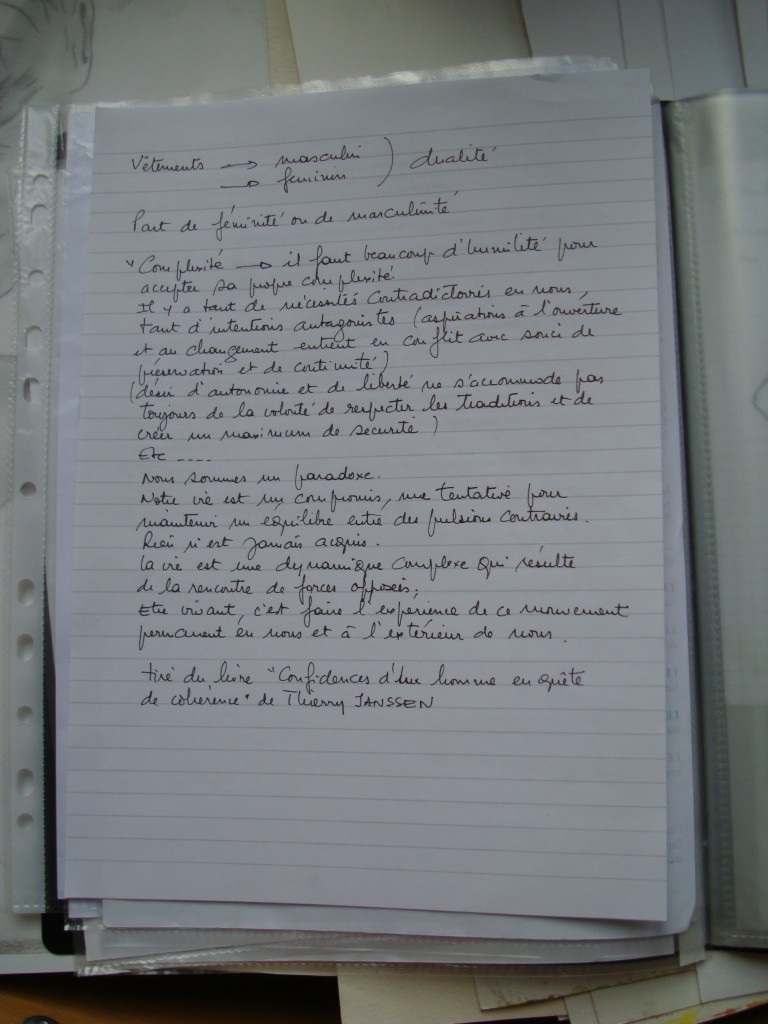 Vêtements → masculin ) dualité
→ féminin
Part de féminité ou de masculinité
"Complexité → il faut beaucoup d'humilité pour
accepter sa propre complexité
Il y a tant de nécessités contradictoires en nous,
tant d'intentions antagonistes (aspirations à l'ouverture
et au changement entrent en conflit avec souci de
préservation et de continuité)
(désir d'autonomie et de liberté ne s'accommode pas
toujours de la volonté de respecter les traditions et de
créer un maximum de sécurité)
Etc ....
Nous sommes un paradoxe.
Notre vie est un compromis, une tentative pour
maintenir un équilibre entre des pulsions contraires.
Rien n'est jamais acquis.
La vie est une dynamique complexe qui résulte
de la rencontre de forces opposées;
Etre vivant, c'est faire l'expérience de ce mouvement
permanent en nous et à l'extérieur de nous.
tiré du livre "Confidences d'un homme en quête
de cohérence" de Thierry JANSSEN